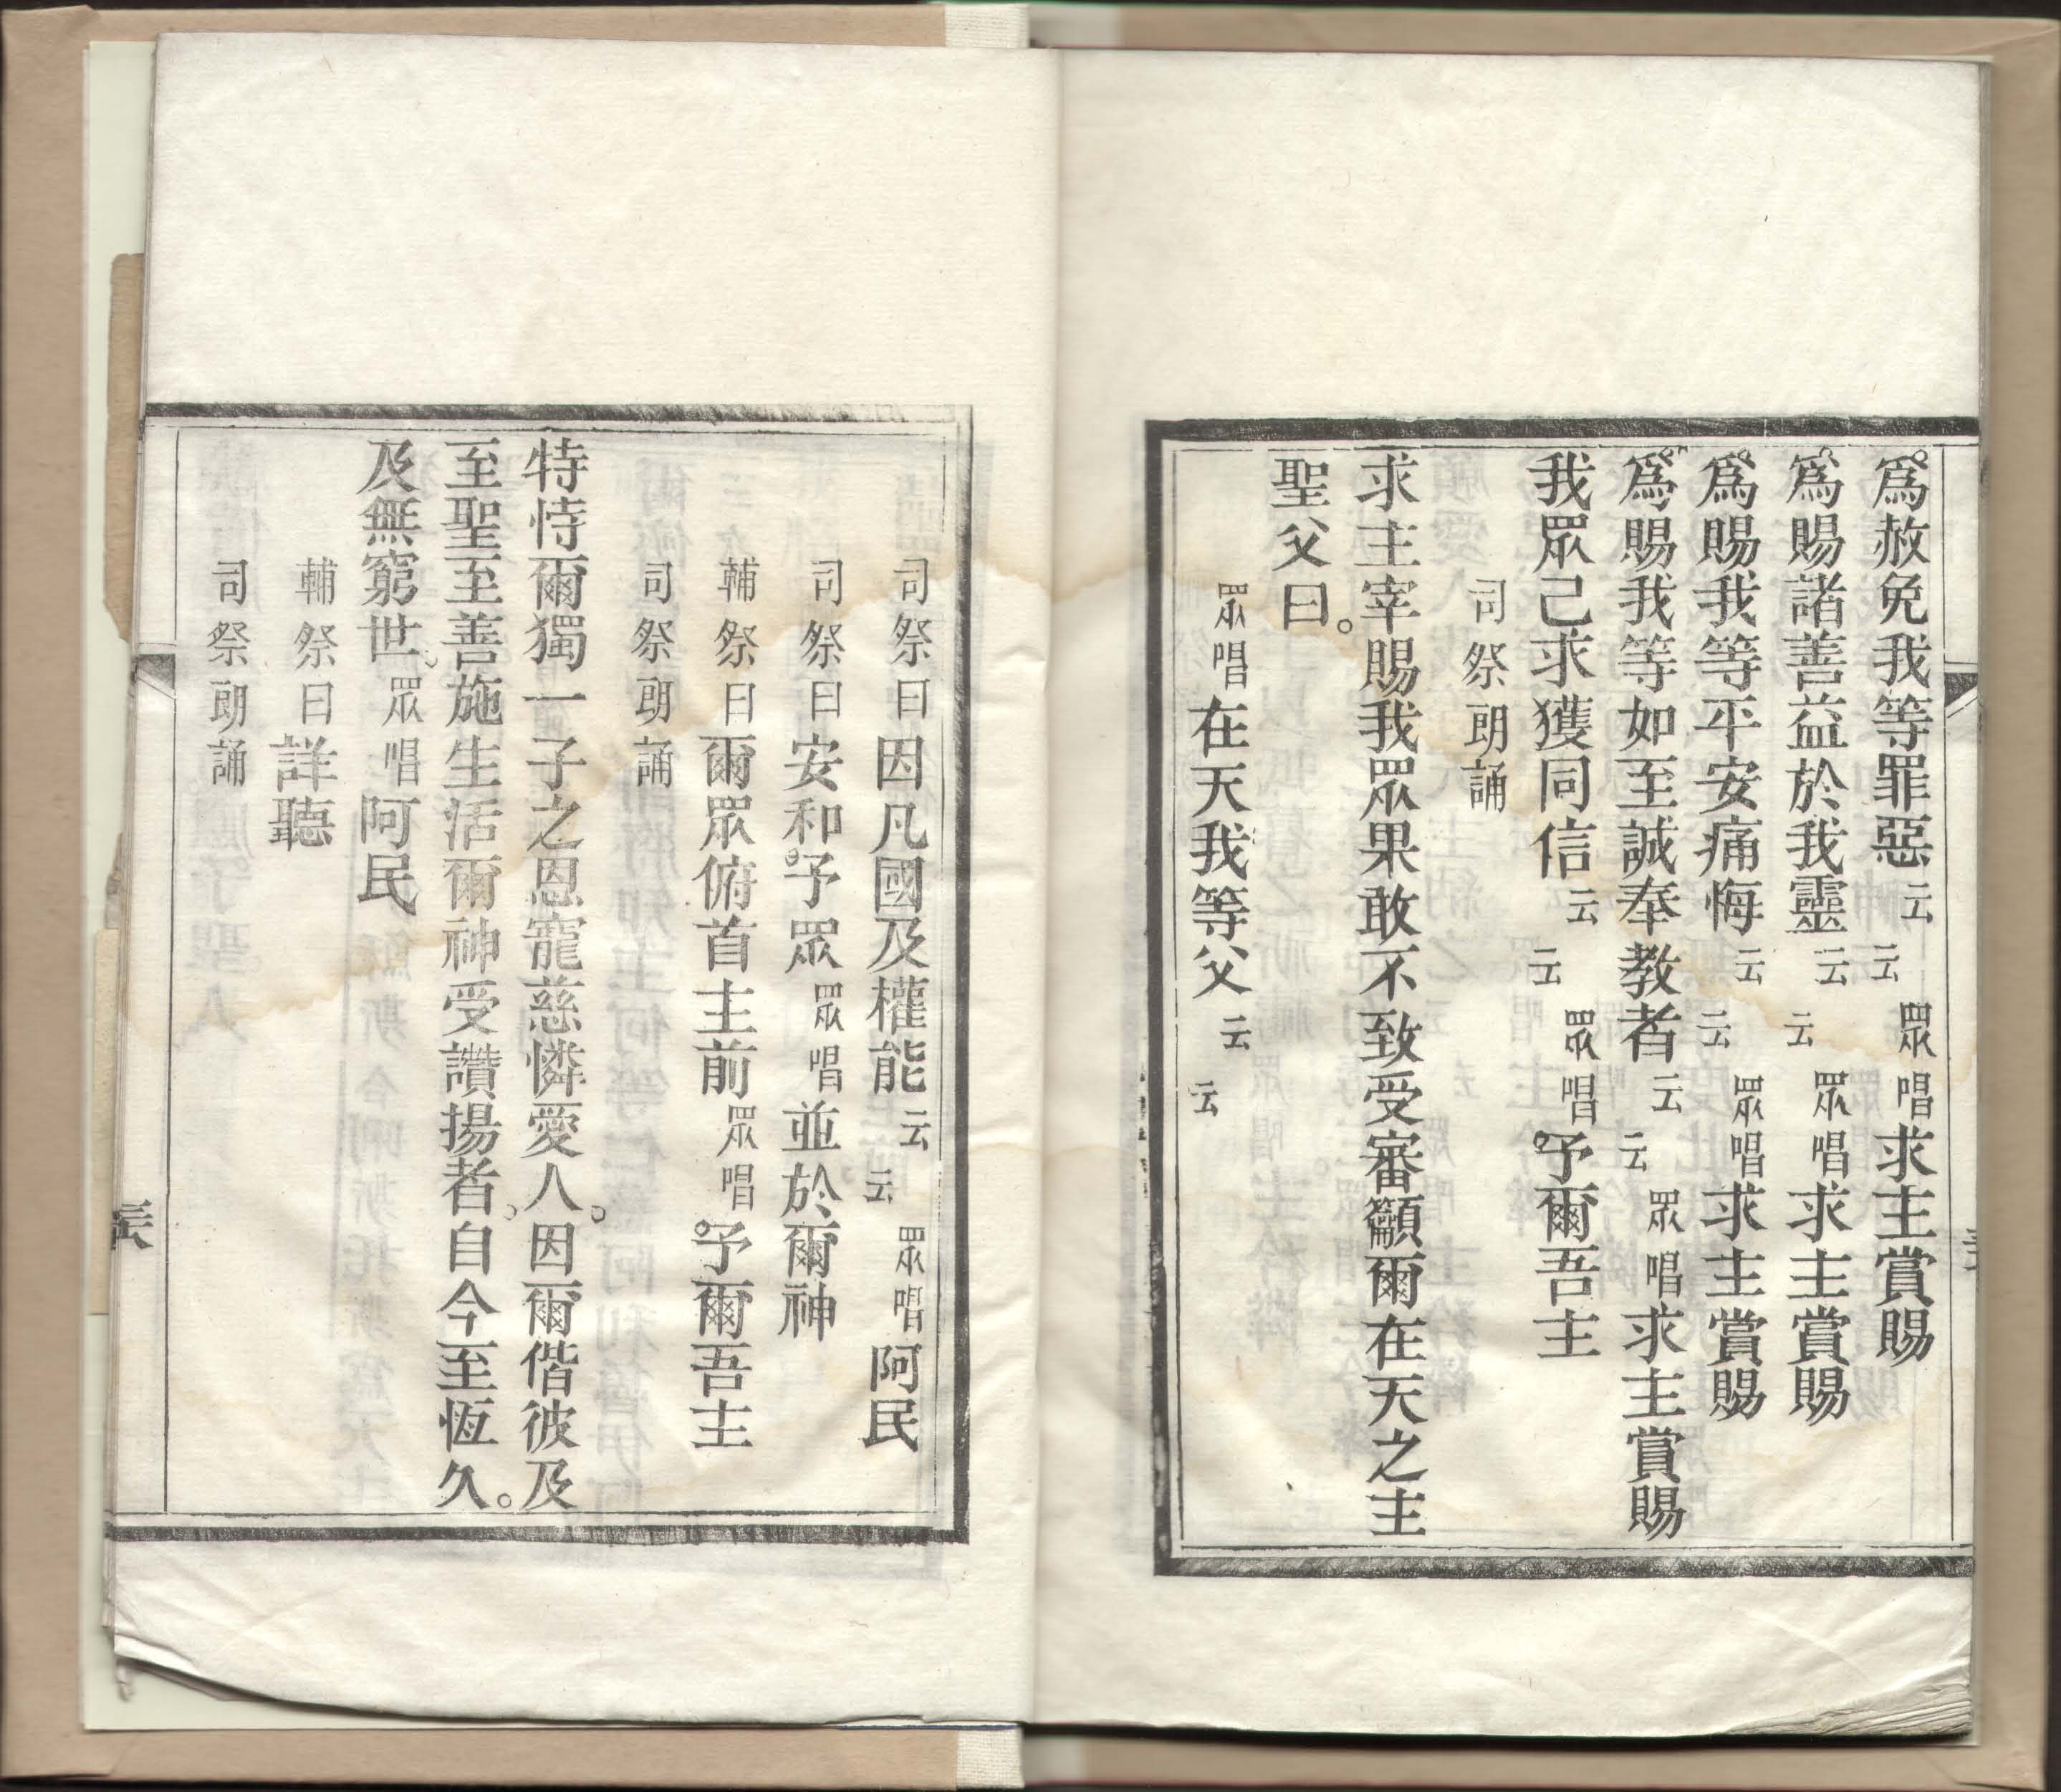 爲赦免我等罪惡云云眾唱求主賞賜
爲賜諸善益於我靈云云眾唱求主賞賜
爲賜我等平安痛悔云云眾唱求主賞賜
爲賜我等如至誠奉教者云云眾唱求主賞賜
我眾己求獲同信云云眾唱予爾吾主
司祭朗誦
求主宰賜我眾果敢不致受審籲爾在天之主
聖父曰。
眾唱在天我等父云云
司祭曰因凡國及權能云云眾唱阿民
司祭曰安和予眾眾唱並於爾神
輔祭曰爾眾俯首主前眾唱予爾吾主
司祭朗誦
特恃爾獨一子之恩寵慈憐愛人。因爾偕彼及
至聖至善施生活爾神受讚揚者。自今至恆久。
及無窮世。眾唱阿民
輔祭曰詳聽
司祭朗誦